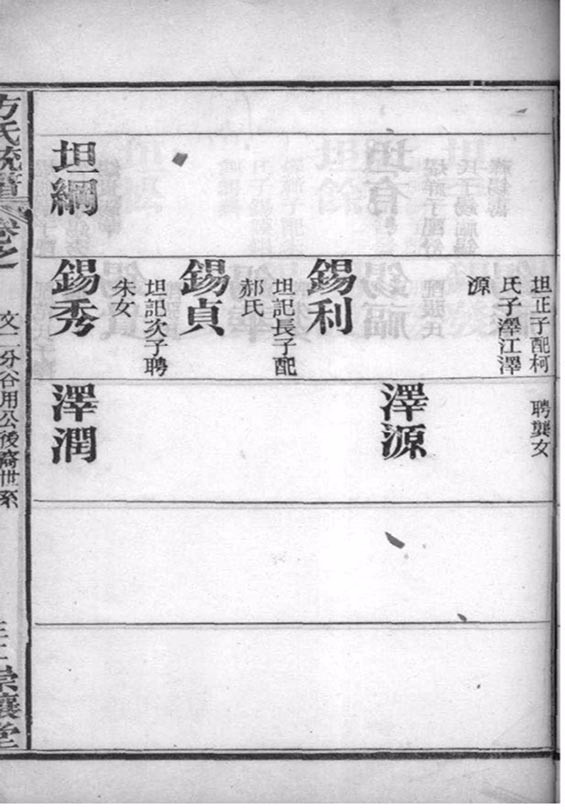 坦正子配柯
氏子澤江澤
源
錫利
坦記長子配
郝氏
錫貞
坦記次子聘
朱女
錫秀
坦綱
聘龔女
澤源
澤潤
方氏統譜
卷之一
文二分谷用公後裔世系
崇讓堂